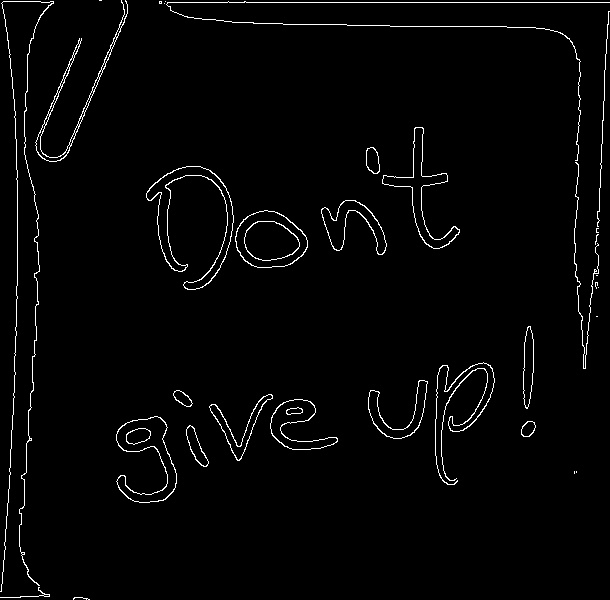 Don't
give up!